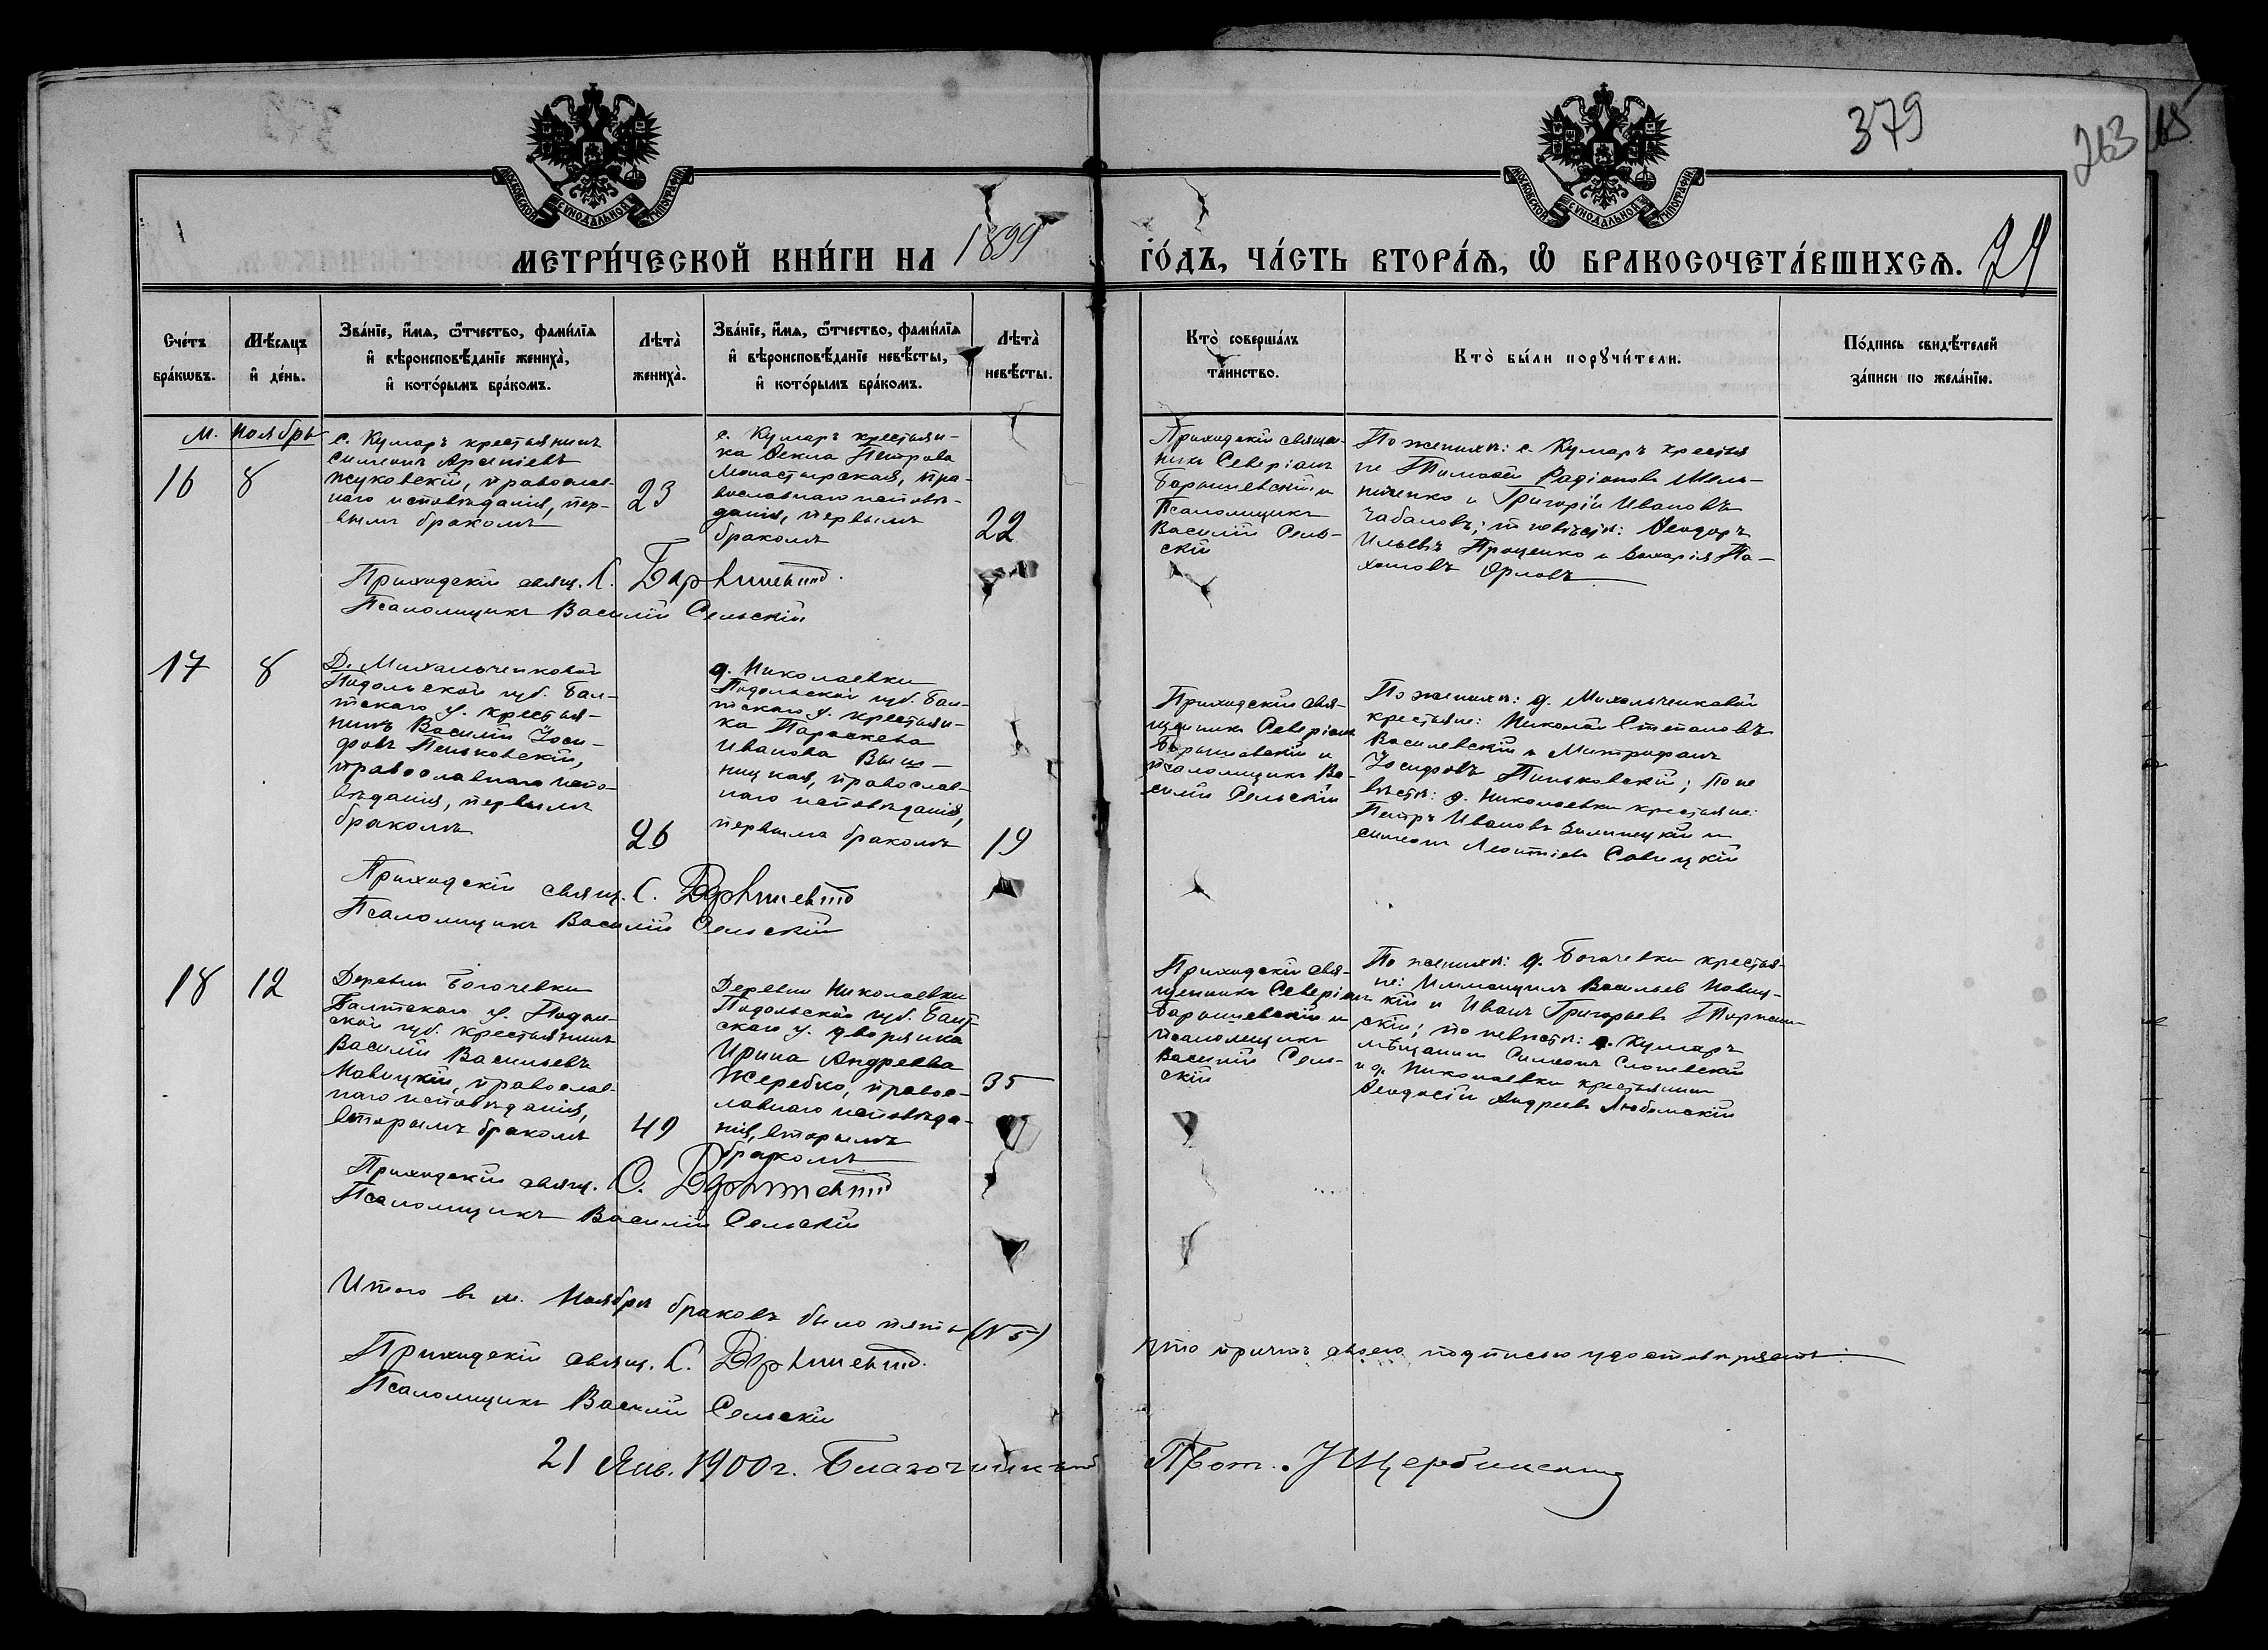 379
263
65
МОСКОВСКОЙ СѴНОДАЛЬНОЙ ТИПОГРАФІИ
МОСКОВСКОЙ СѴНОДАЛЬНОЙ ТИПОГРАФІИ
МЕТРИ́ЧЕСКОЙ КНИ́ГИ НА 1899
ГО́ДЪ, ЧА́СТЬ ВТОРА́Ѧ, Ѡ БРАКОСОЧЕТА́ВШИХСѦ.
Сче́тъ
бра́кѡвъ.
Мѣ́сѧцъ
и де́нь.
Зва́нїе, и́мѧ, ѻ́тчество, фами́лїѧ
и вѣроисповѣ́данїе жениха̀,
и кото́рымъ бра́комъ.
Лѣта̀
жениха̀.
Зва́нїе, и́мѧ, ѻ́тчество, фами́лїѧ
и вѣроисповѣ́данїе невѣ́сты,
и кото́рымъ бра́комъ.
Лѣта̀
невѣ́сты.
Кто̀ соверша́лъ
та́инство.
Кто̀ бы́ли порꙋчи́тели.
По́дпись свидѣ́телей
за́писи по жела́нїю.
м. Ноябрь
16
8
с. Кумаръ крестьянинъ
Симеонъ Арсеніевъ
Жуковскій, православ-
наго исповѣданія, пер-
вымъ бракомъ
23
с. Кумаръ крестьян-
ка Ѳекла Петрова
Монастырская, пра-
вославнаго исповѣ-
данія, первымъ
бракомъ
22
Приходскій священ-
никъ Северіанъ
Барышевскій и
Псаломщикъ
Василій Сель-
скій
По женихѣ: с. Кумаръ крестья
не Тимоѳей Радіоновъ Мель-
ниченко и Григорій Ивановъ
Чабановъ; по невѣстѣ: Ѳеодоръ
Ильевъ Проценко и Захарія Па-
хомовъ Орловъ
Приходскій свящ. С.
Псаломщикъ Василій Сельскій
17
8
Д. Михальченковой
Подольской губ. Бал-
тскаго у. крестья-
нинъ Василій Іоси-
фовъ Пеньковскій,
православнаго испо-
вѣданія, первымъ
бракомъ
26
д. Николаевки
Подольской губ. Бал-
тскаго у. крестьян-
ка Параскева
Иванова Выш-
ницкая, православ-
наго исповѣданія,
первымъ бракомъ
19
Приходскій свя-
щенникъ Северіанъ
Барышевскій и
псаломщикъ Ва-
силій Сельскій
По женихѣ: д. Михальченковой
крестьяне: Николай Степановъ
Василевскій и Митрофанъ
Іосифовъ Пеньковскій; по не
вѣстѣ: д. Николаевки крестьяне:
Петръ Ивановъ и
Симеонъ Леонтіевъ Савицкій
Приходскій свящ. С.
Псаломщикъ Василій Сельскій
18
12
Деревни Богачевки
Балтскаго у. Подоль-
ской губ. крестьянинъ
Василій Васильевъ
Новицкій, православ-
наго исповѣданія,
вторымъ бракомъ
49
Деревни Николаевки
Подольской губ. Балт-
скаго у. дворянка
Ирина Андреева
Жеребко, правос-
лавнаго исповѣда-
нія, вторымъ
бракомъ
35
Приходскій свя-
щенникъ Северіанъ
Барышевскій и
псаломщикъ
Василій Сель-
скій
По женихѣ: д. Богачевки крестья-
не: Васильев Новиц-
кій и Иванъ Григорьевъ
скій; по невѣстѣ: с. Кумаръ
мѣщанин Симеонъ
и д. Николаевки крестьянин
Ѳеодосій Андреевъ Любомскій
Приходскій свящ. С.
Псаломщикъ Василій Сельскій
Итого въ м. Ноябрѣ браковъ было пять (№ 5)
что причтъ своею подписью удостовѣряетъ:
Приходскій свящ. С.
Псаломщикъ Василій Сельскій
21 Янв. 1900 г. Благочинный
Прот. Щербинскій